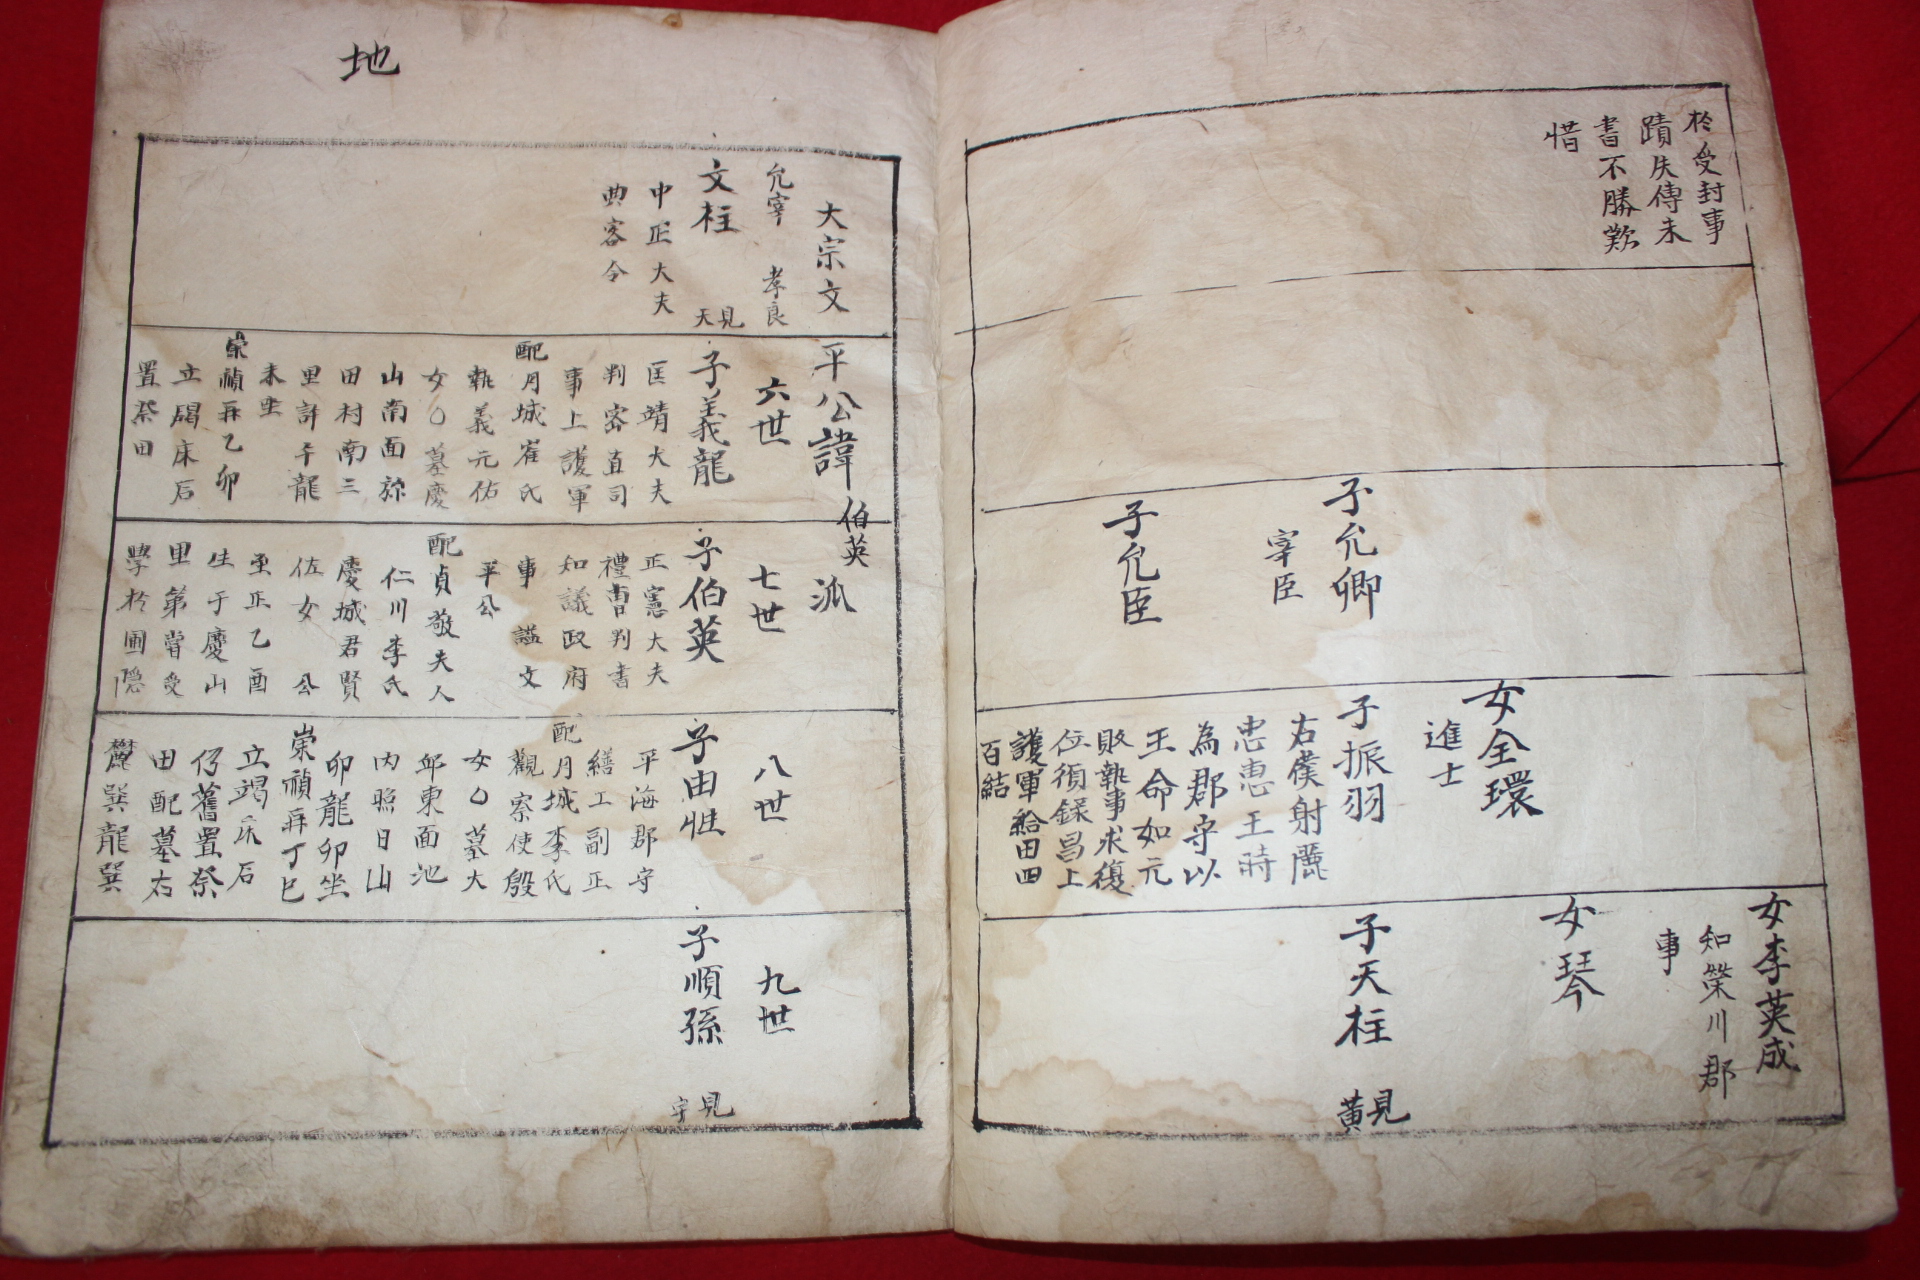 於受封事
蹟失傳未
書不勝歎
惜
子允卿
宰臣
子允臣
女全環
進士
子振羽
右僕射麗
忠惠王時
為郡守以
王命如元
敗執事求復
位須錄昌上
護軍給田四
百結
女李英成
知榮川郡
事
女琴
子天柱
見
黃
地
大宗文
平公諱
伯英
派
允宰
孝良
文柱
見
天
中正大夫
典客令
六世
子義龍
匡靖大夫
判客直司
事上護軍
配月城崔氏
執義元佑
女〇墓慶
山南面
田村南三
里許午龍
來坐
崇禎再乙卯
立碣床石
置祭田
七世
子伯英
正憲大夫
禮曹判書
知議政府
事諡文
平公
配貞敬夫人
仁川李氏
慶城君賢
佐女公
至正乙酉
生于慶山
里第嘗受
學於圃隱
八世
子由性
平海郡守
繕工副正
配月城李氏
觀察使殷
女〇墓大
邱東面池
內照日山
卯龍卯坐
崇禎再丁巳
立竭床石
仍舊置祭
田配墓右
巽龍巽
九世
子順孫
見
宇